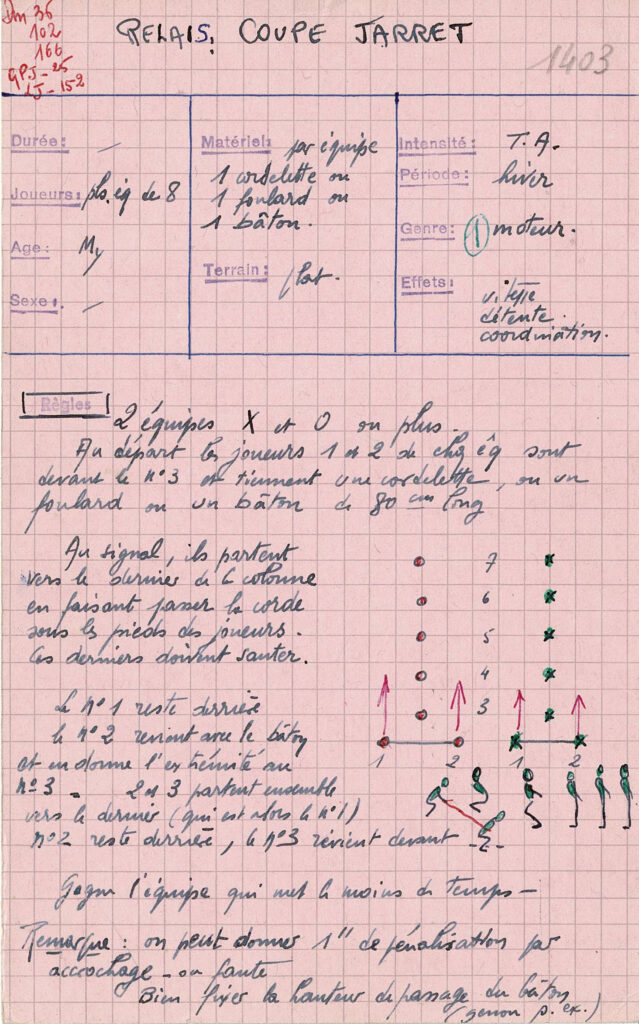 Dm 36
102
166
GPJ - 25
LJ - 152
RELAIS: COUPE JARRET
1403
Durée: —
Joueurs: pls. éq de 8
Age: My
Sexe: —
Matériel: par équipe
1 cordelette ou
1 foulard ou
1 bâton.
Terrain: plat.
Intensité: T.A.
Période: hiver
Genre: 1 moteur.
Effets: vitesse
détente.
coordination.
Règles
2 équipes X et O ou plus.
Au départ les joueurs 1 et 2 de chq éq sont
devant le n°3 et tiennent une cordelette, ou un
foulard ou un bâton de 80 cm long
Au signal, ils partent
vers le dernier de la colonne
en faisant passer la corde
sous les pieds des joueurs.
Ces derniers doivent sauter.
Le n°1 reste derrière
le n°2 revient avec le bâton
et en donne l'extrémité au
n°3 - 2 et 3 partent ensemble
vers le dernier (qui est alors le n°1)
n°2 reste derrière, le n°3 revient devant
7
6
5
4
3
1 2 1 2
Gagne l'équipe qui met le moins de temps —
Remarque: on peut donner 1" de pénalisation par
accrochage - ou faute
Bien fixer la hauteur de passage du bâton
(genou p. ex.)